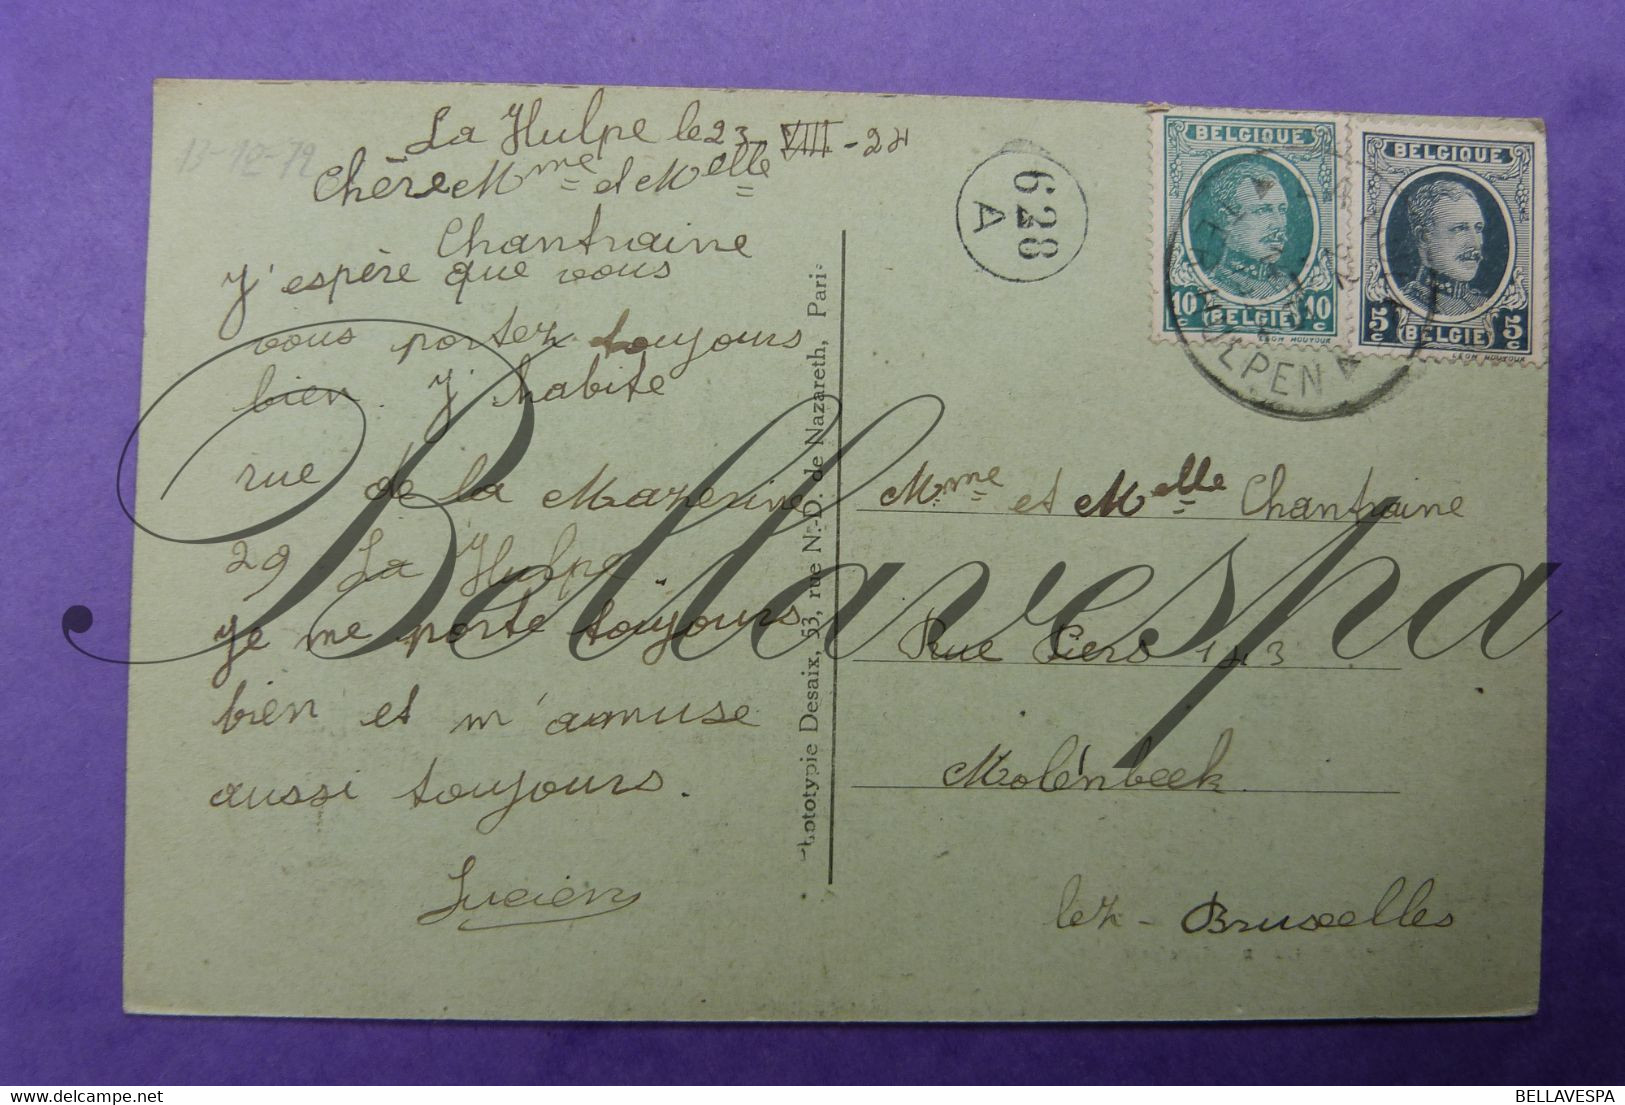 13-10-72
La Hulpe le 23 VIII-24
Chère Mme et Melle
Chantraine
J'espère que vous
vous portez toujours
bien. J'habite
rue de la Mazerine
29 La Hulpe.
Je me porte toujours
bien et m'amuse
aussi toujours.
Lucien
Phototypie Desaix, 53, rue N.-D. de Nazareth, Paris
628
A
BELGIQUE
10c 10c
BELGIE
LEON HOUYOUX
BELGIQUE
5c 5c
BELGIE
LEON HOUYOUX
LA HULPE
TERHULPEN
Mme et Melle Chantraine
Rue Piers 143
Molenbeek
lez-Bruxelles
Bellavespa
BELLAVESPA